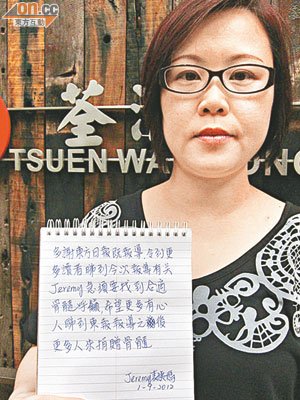 on.cc
東方互動
荃
TSUEN WA ONG
多謝東方日報既報導令到更
多讀者睇到今次報導有关
Jeremy急需要找到合適
骨髓呼籲，希望更多有心
人睇到東報報導之後
更多人來捐贈骨髓.
Jeremy
1-9-2012